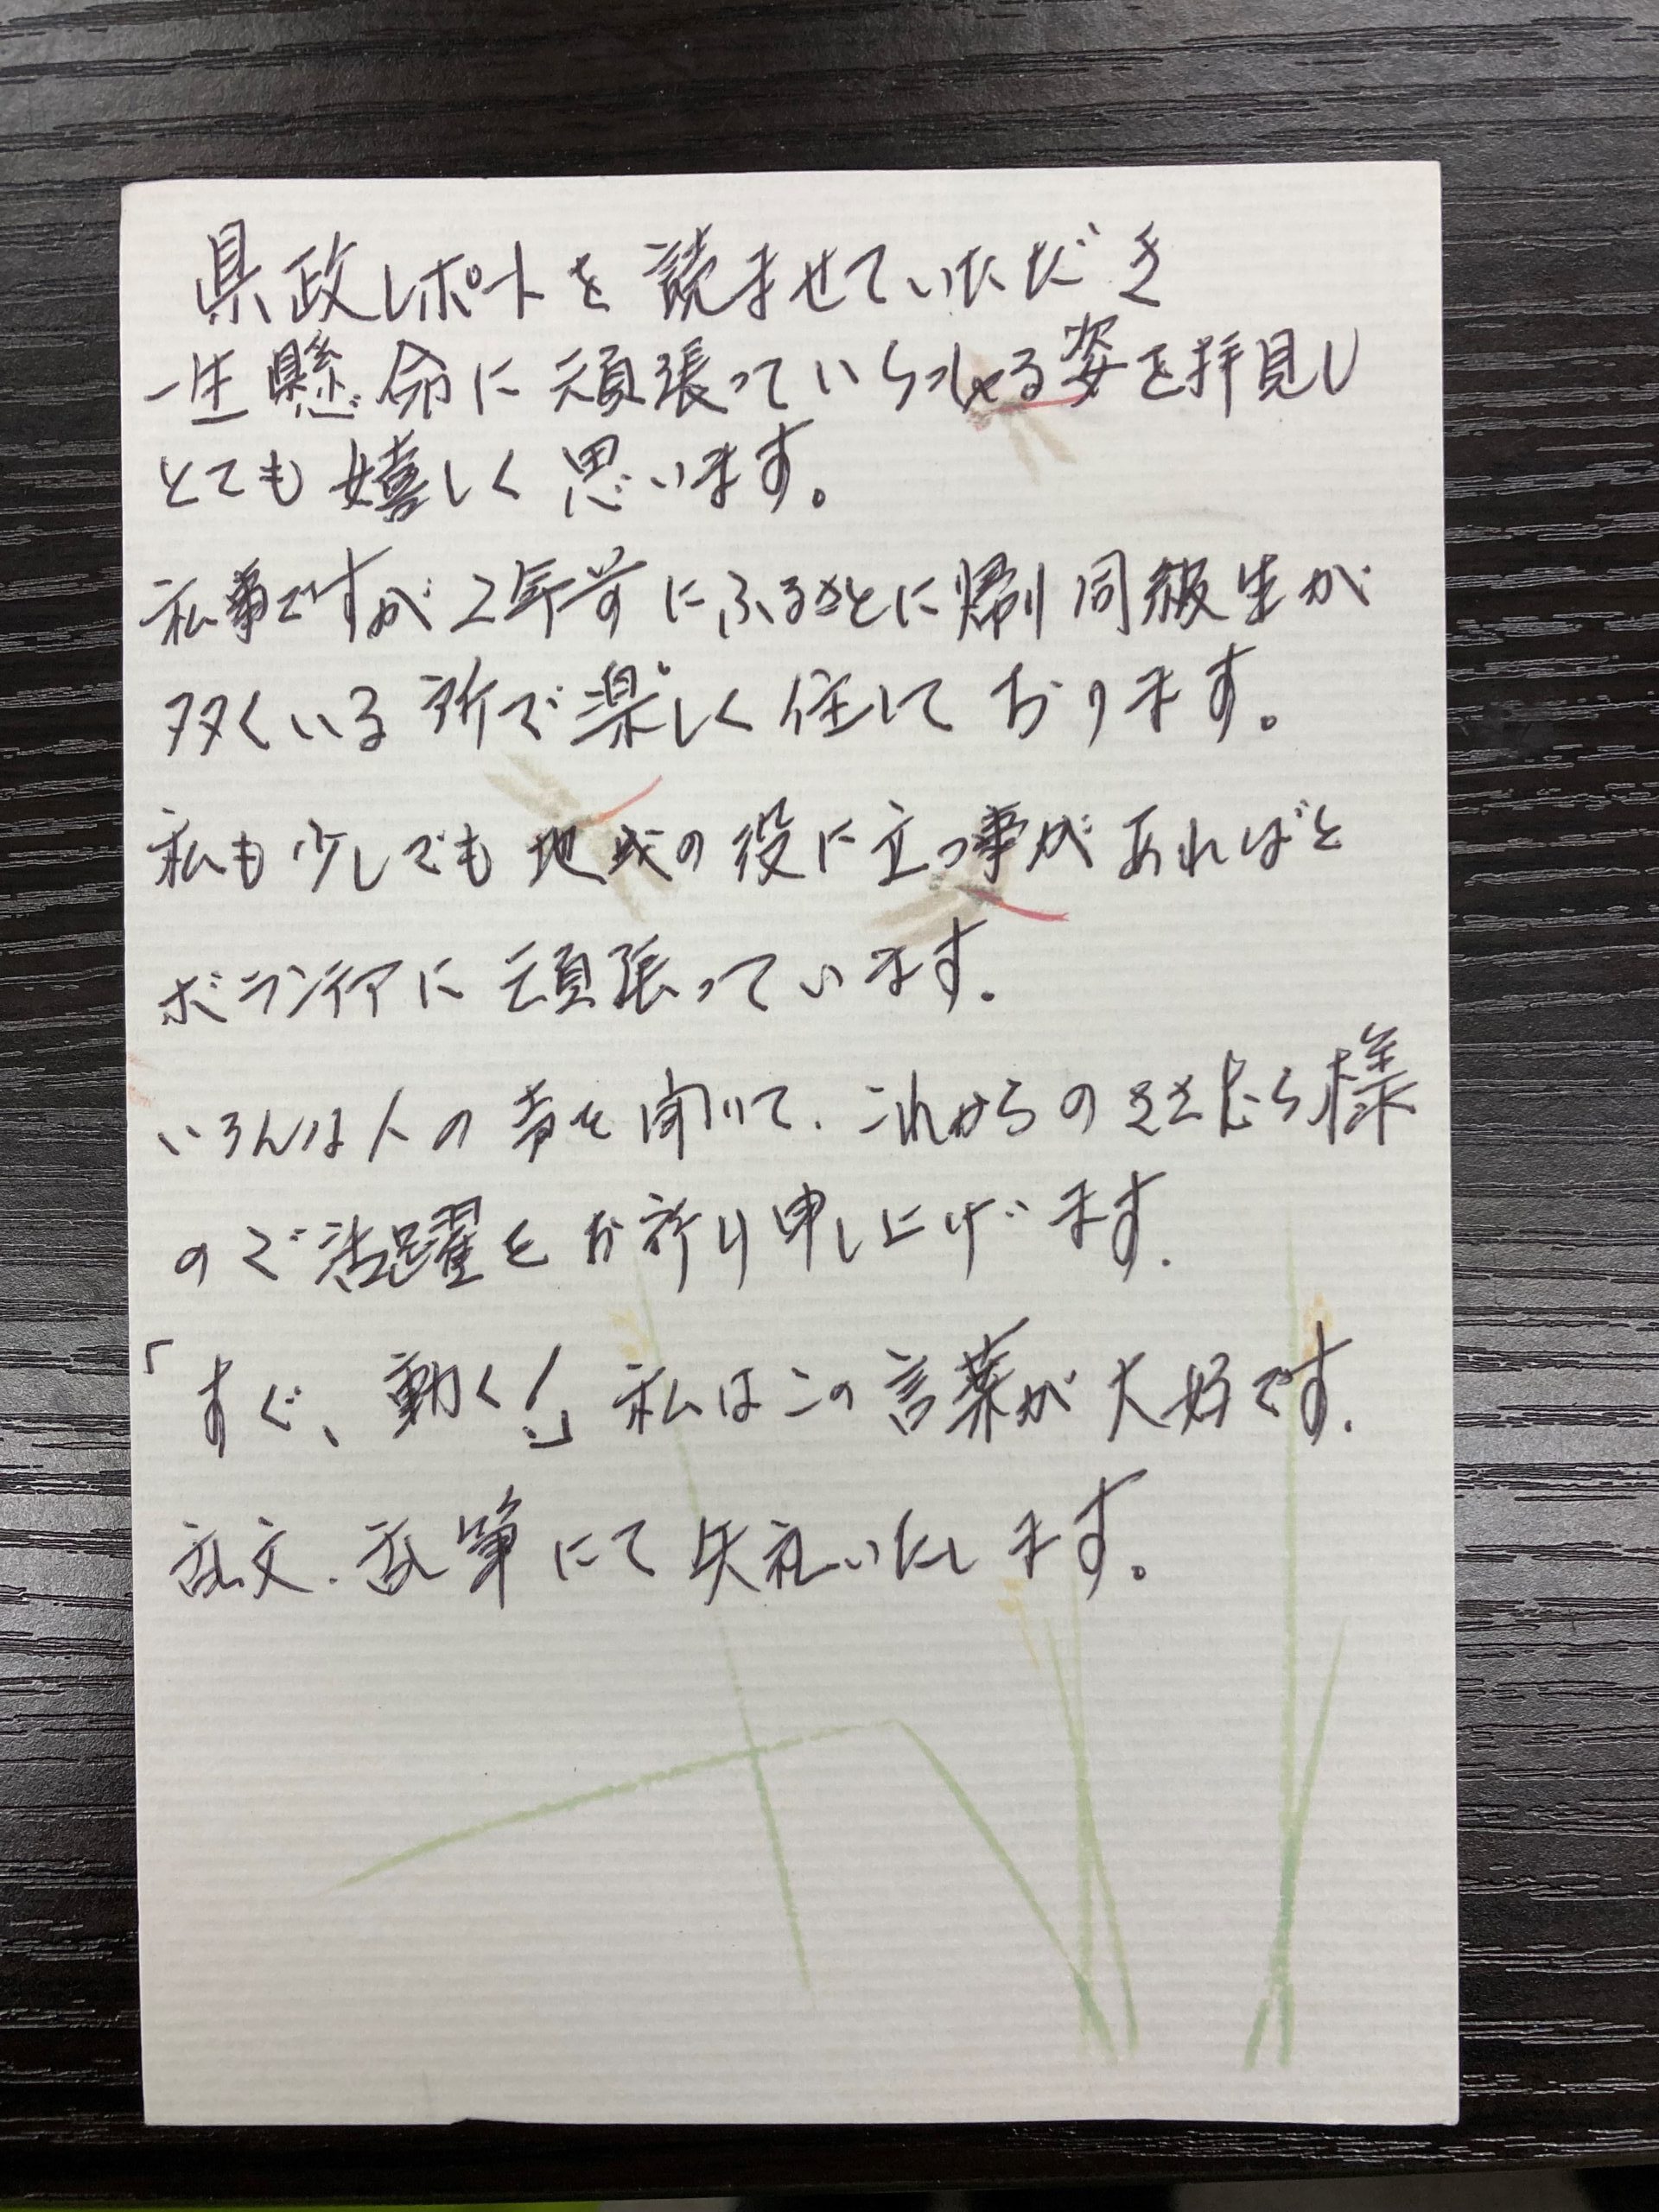 県政レポートを読ませていただき
一生懸命に頑張っていらっしゃる姿を拝見し
とても嬉しく思います。
私事ですが2年前にふるさとに帰り同級生が
多くいる所で楽しく住して おります。
私も少しでも地域の役に立つ事があればと
ボランティアに頑張っています。
いろんな人の声を聞いて、これからの 様
のご活躍をお祈り申し上げます.
「すぐ、動く!」私はこの言葉が大好です.
乱文.乱筆にて失礼いたします。